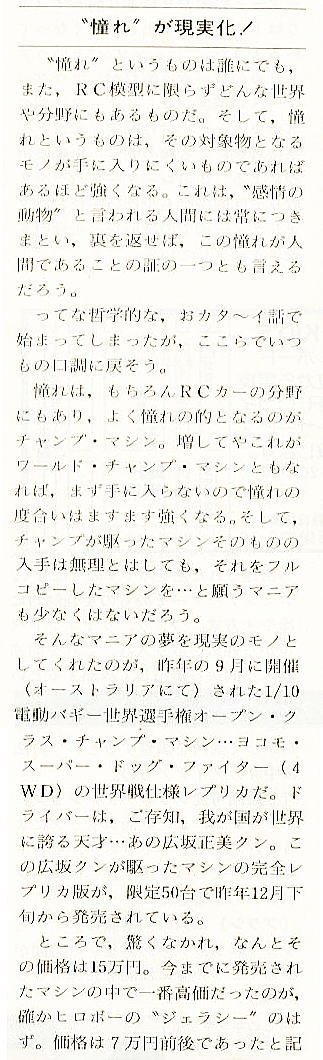 〝憧れ〟が現実化！
〝憧れ〟というものは誰にでも，
また，ＲＣ模型に限らずどんな世界
や分野にもあるものだ。そして，憧
れというものは，その対象物となる
モノが手に入りにくいものであれば
あるほど強くなる。これは，〝感情の
動物〟と言われる人間には常につき
まとい，裏を返せば，この憧れが人
間であることの証の一つとも言える
だろう。
ってな哲学的な，おカタ〜イ話で
始まってしまったが，ここらでいつ
もの口調に戻そう。
憧れは，もちろんＲＣカーの分野
にもあり，よく憧れの的となるのが
チャンプ・マシン。増してやこれが
ワールド・チャンプ・マシンともな
れば，まず手に入らないので憧れの
度合いはますます強くなる。そして，
チャンプが駆ったマシンそのものの
入手は無理とはしても，それをフル
コピーしたマシンを…と願うマニア
も少なくはないだろう。
そんなマニアの夢を現実のモノと
してくれたのが，昨年の９月に開催
（オーストラリアにて）された1/10
電動バギー世界選手権オープン・ク
ラス・チャンプ・マシン…ヨコモ・
スーパー・ドッグ・ファイター（４
ＷＤ）の世界戦仕様レプリカだ。ド
ライバーは，ご存知，我が国が世界
に誇る天才…あの広坂正美クン。こ
の広坂クンが駆ったマシンの完全レ
プリカ版が，限定50台で昨年12月下
旬から発売されている。
ところで，驚くなかれ，なんとそ
の価格は15万円。今までに発売され
たマシンの中で一番高価だったのが，
確かヒロボーの〝ジェラシー〟のは
ず。価格は７万円前後であったと記